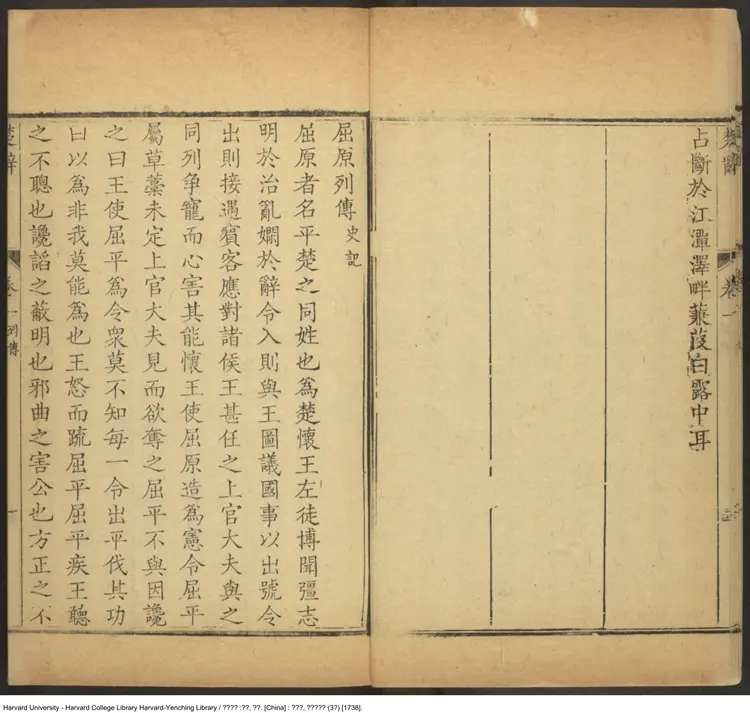 楚辭
占斷於江潭澤畔蒹葭白露中耳
卷一
屈原列傳史記
屈原者名平楚之同姓也爲楚懷王左徒博聞彊志
明於治亂嫻於辭令入則與王圖議國事以出號令
出則接遇賓客應對諸侯王甚任之上官大夫與之
同列争寵而心害其能懷王使屈原造爲憲令屈平
屬草藁未定上官大夫見而欲奪之屈平不與因讒
之曰王使屈平爲令衆莫不知每一令出平伐其功
曰以爲非我莫能爲也王怒而疏屈平屈平疾王聽
之不聰也讒謟之蔽明也邪曲之害公也方正之不
楚辭
卷一列傳
一
Harvard University - Harvard College Library Harvard-Yenching Library / ???? :??, ??. [China] : ???, ????? (3?) [1738].